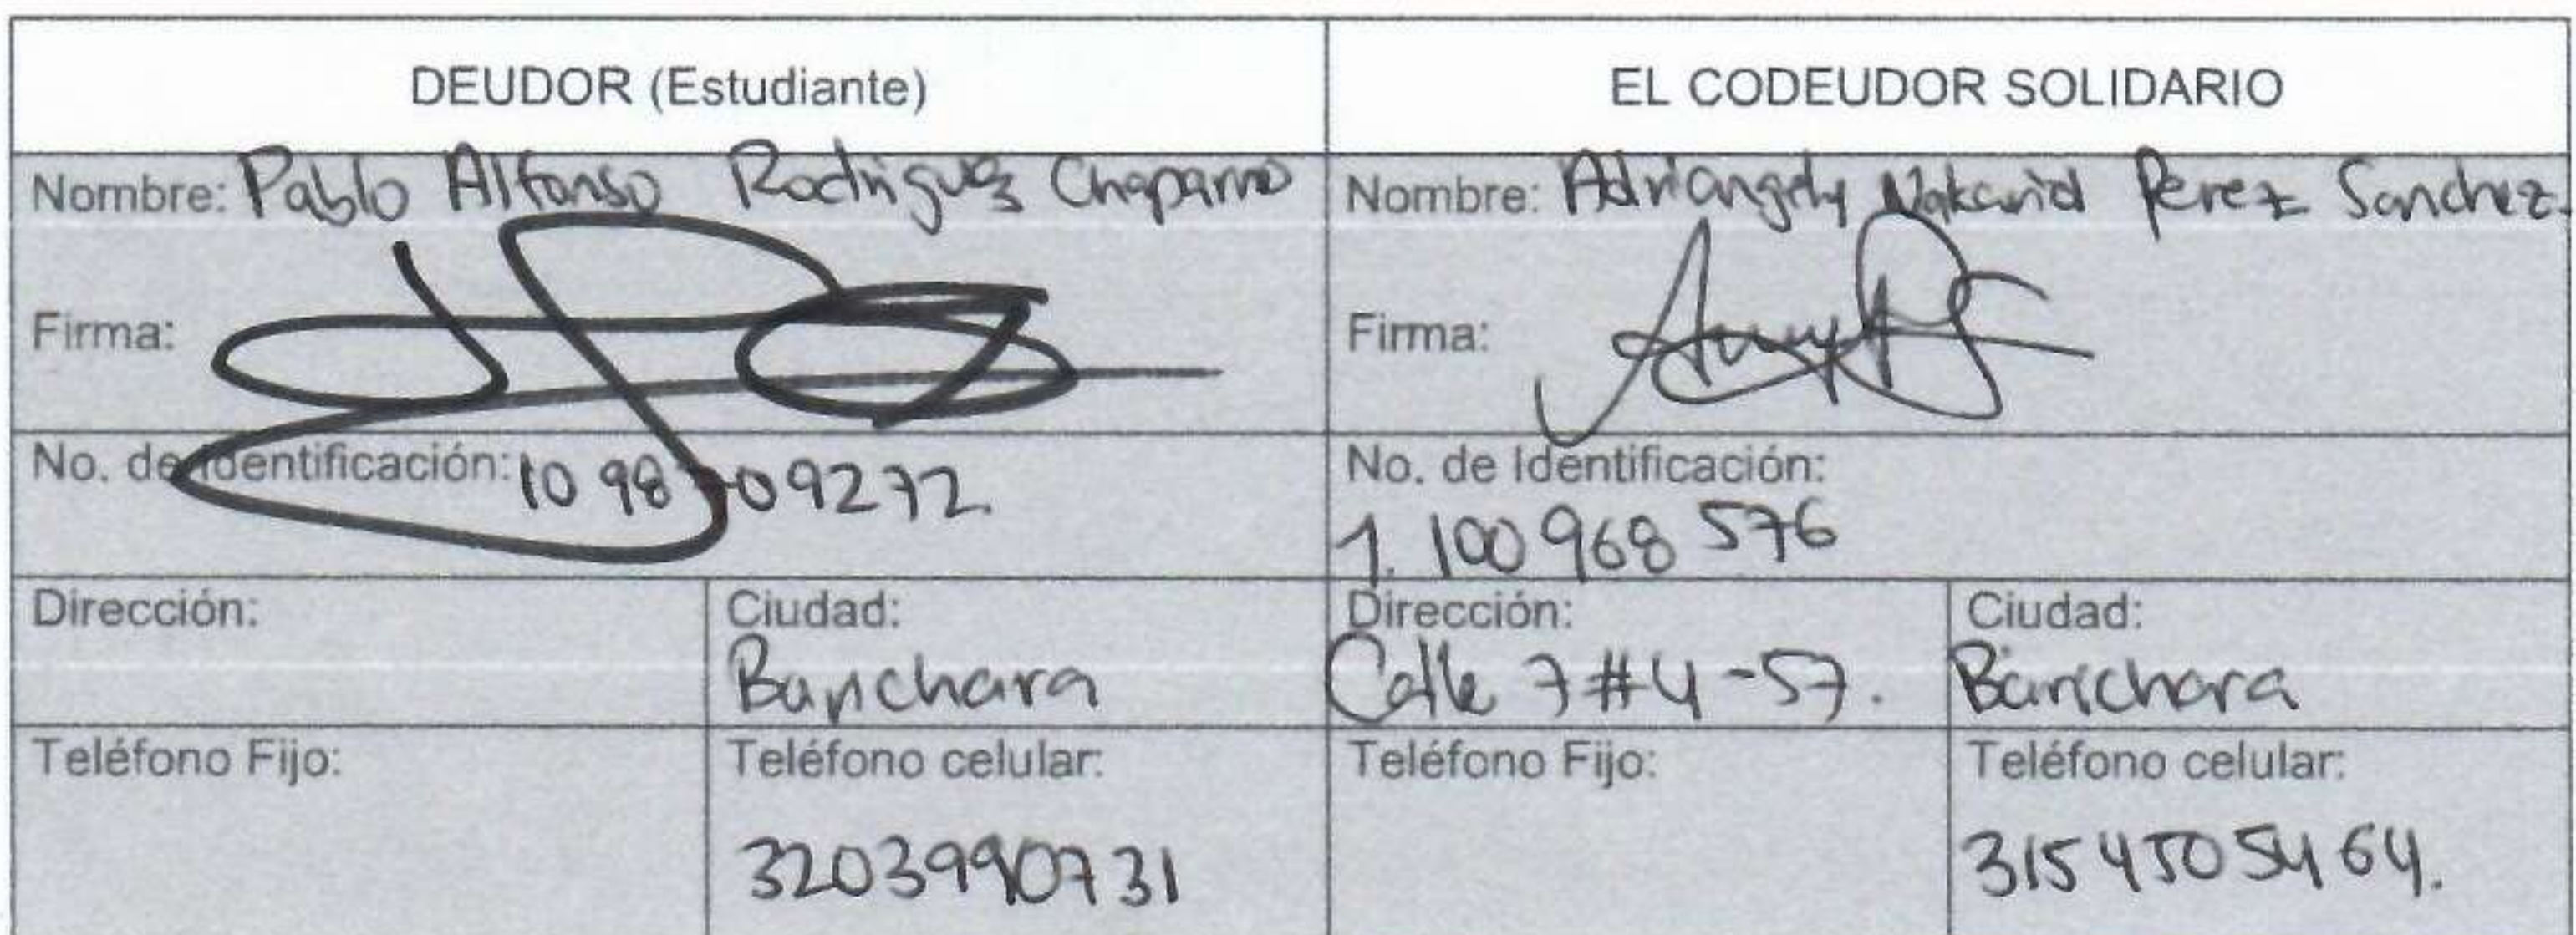 DEUDOR (Estudiante)
EL CODEUDOR SOLIDARIO
Nombre: Pablo Alfonso Rodriguez Chaparro
Nombre: Adriangely Perez Sanchez.
Firma:
Firma:
No. de Identificación: 10 98 709272.
No. de Identificación:
1. 100 968 576
Dirección:
Ciudad:
Barichara
Dirección:
Calle 7 #4-57.
Ciudad:
Barichara
Teléfono Fijo:
Teléfono celular:
3203990731
Teléfono Fijo:
Teléfono celular:
3154505464.